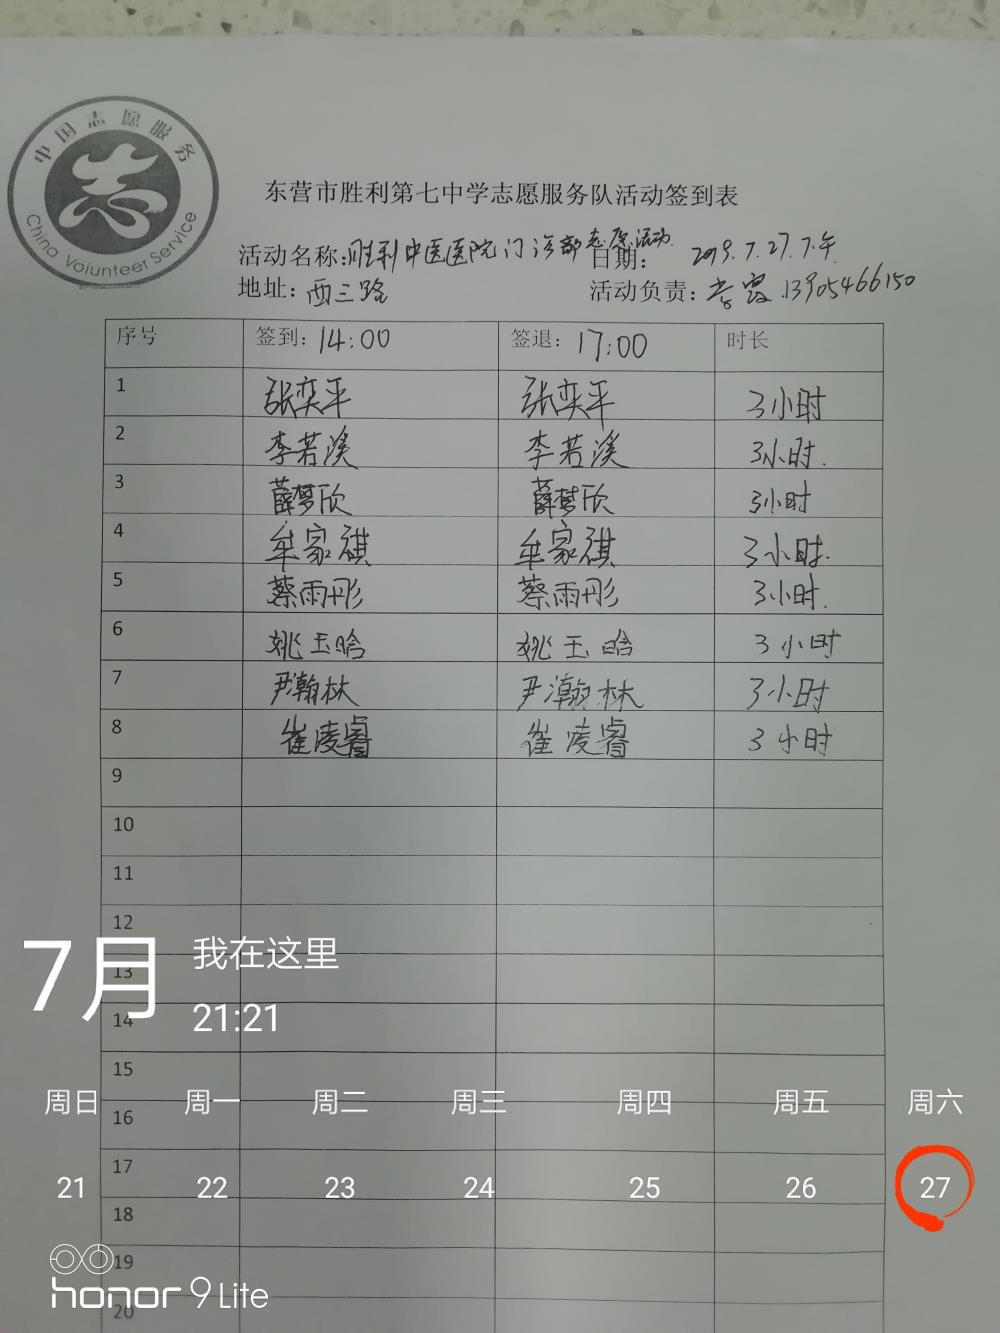 中国志愿服务
China Voiunteer Service
东营市胜利第七中学志愿服务队活动签到表
活动名称:胜利中医医院门诊部志愿活动 日期: 2019.7.27.下午
地址: 西三路 活动负责: 李霞 13905466150
序号 签到: 14:00 签退: 17:00 时长
1 张奕平 张奕平 3小时
2 李若溪 李若溪 3小时.
3 薛梦欣 薛梦欣 3小时
4 牟家祺 牟家祺 3小时.
5 蔡雨彤 蔡雨彤 3小时.
6 姚玉晗 姚玉晗 3小时
7 尹瀚林 尹瀚林 3小时
8 崔凌睿 崔凌睿 3小时
9
10
11
12
13
14
15
16
17
18
19
20
7月 我在这里
21:21
周日 周一 周二 周三 周四 周五 周六
21 22 23 24 25 26 27
honor 9 Lite